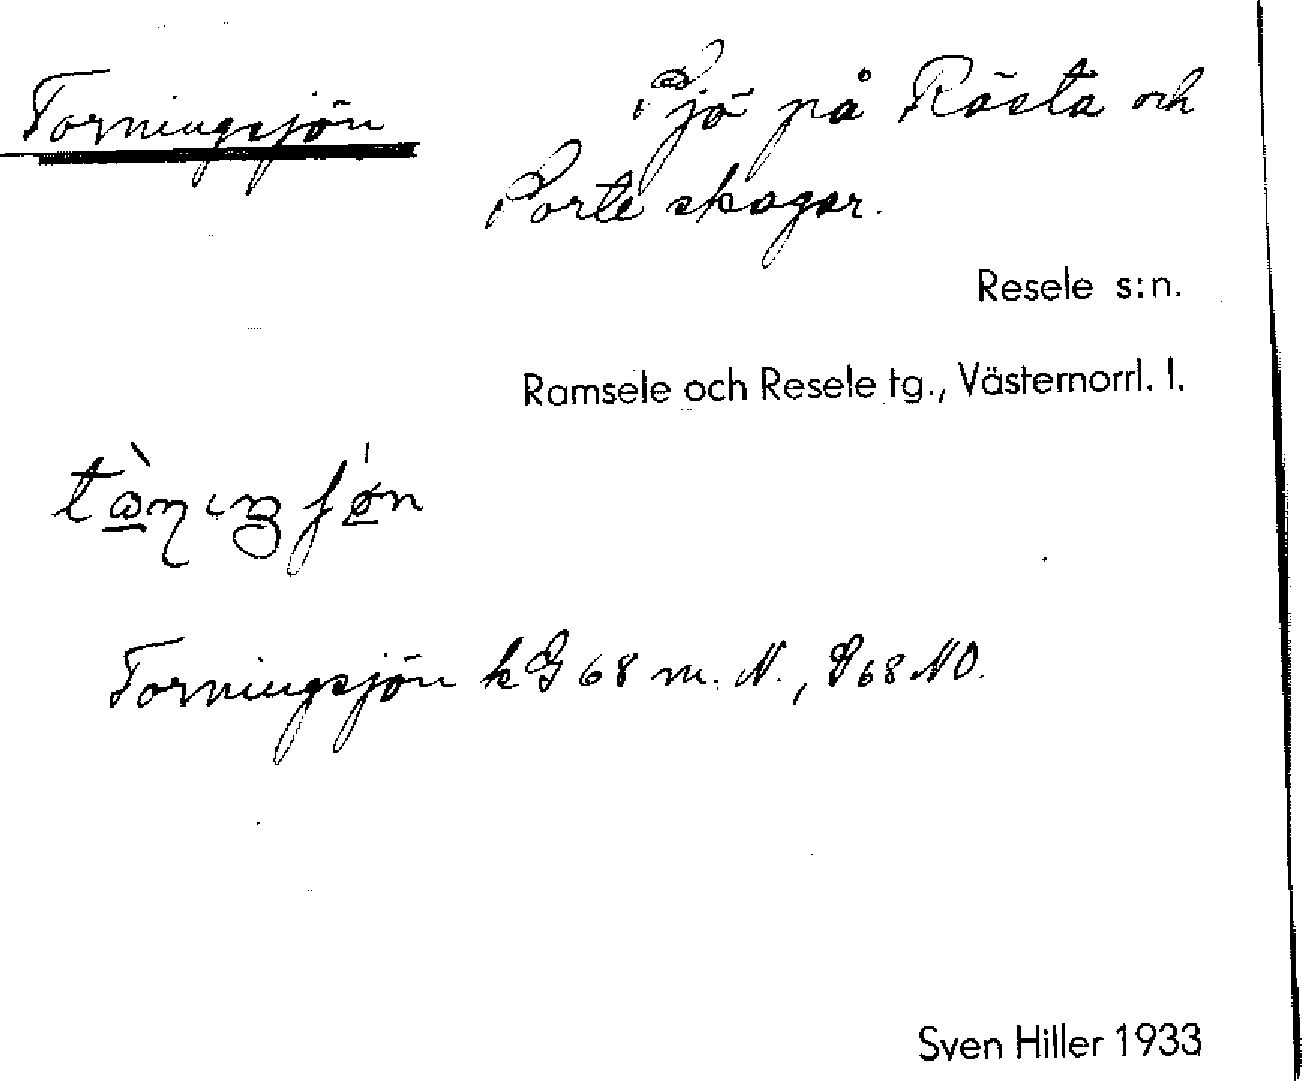 Torningsjön
Sjö på Rösta och
Sorte skogar.
Resele s:n.
Ramsele och Resele tg., Västernorrl. l.
Torningsjön k G 68 m. N., S 68 NO.
Sven Hiller 1933